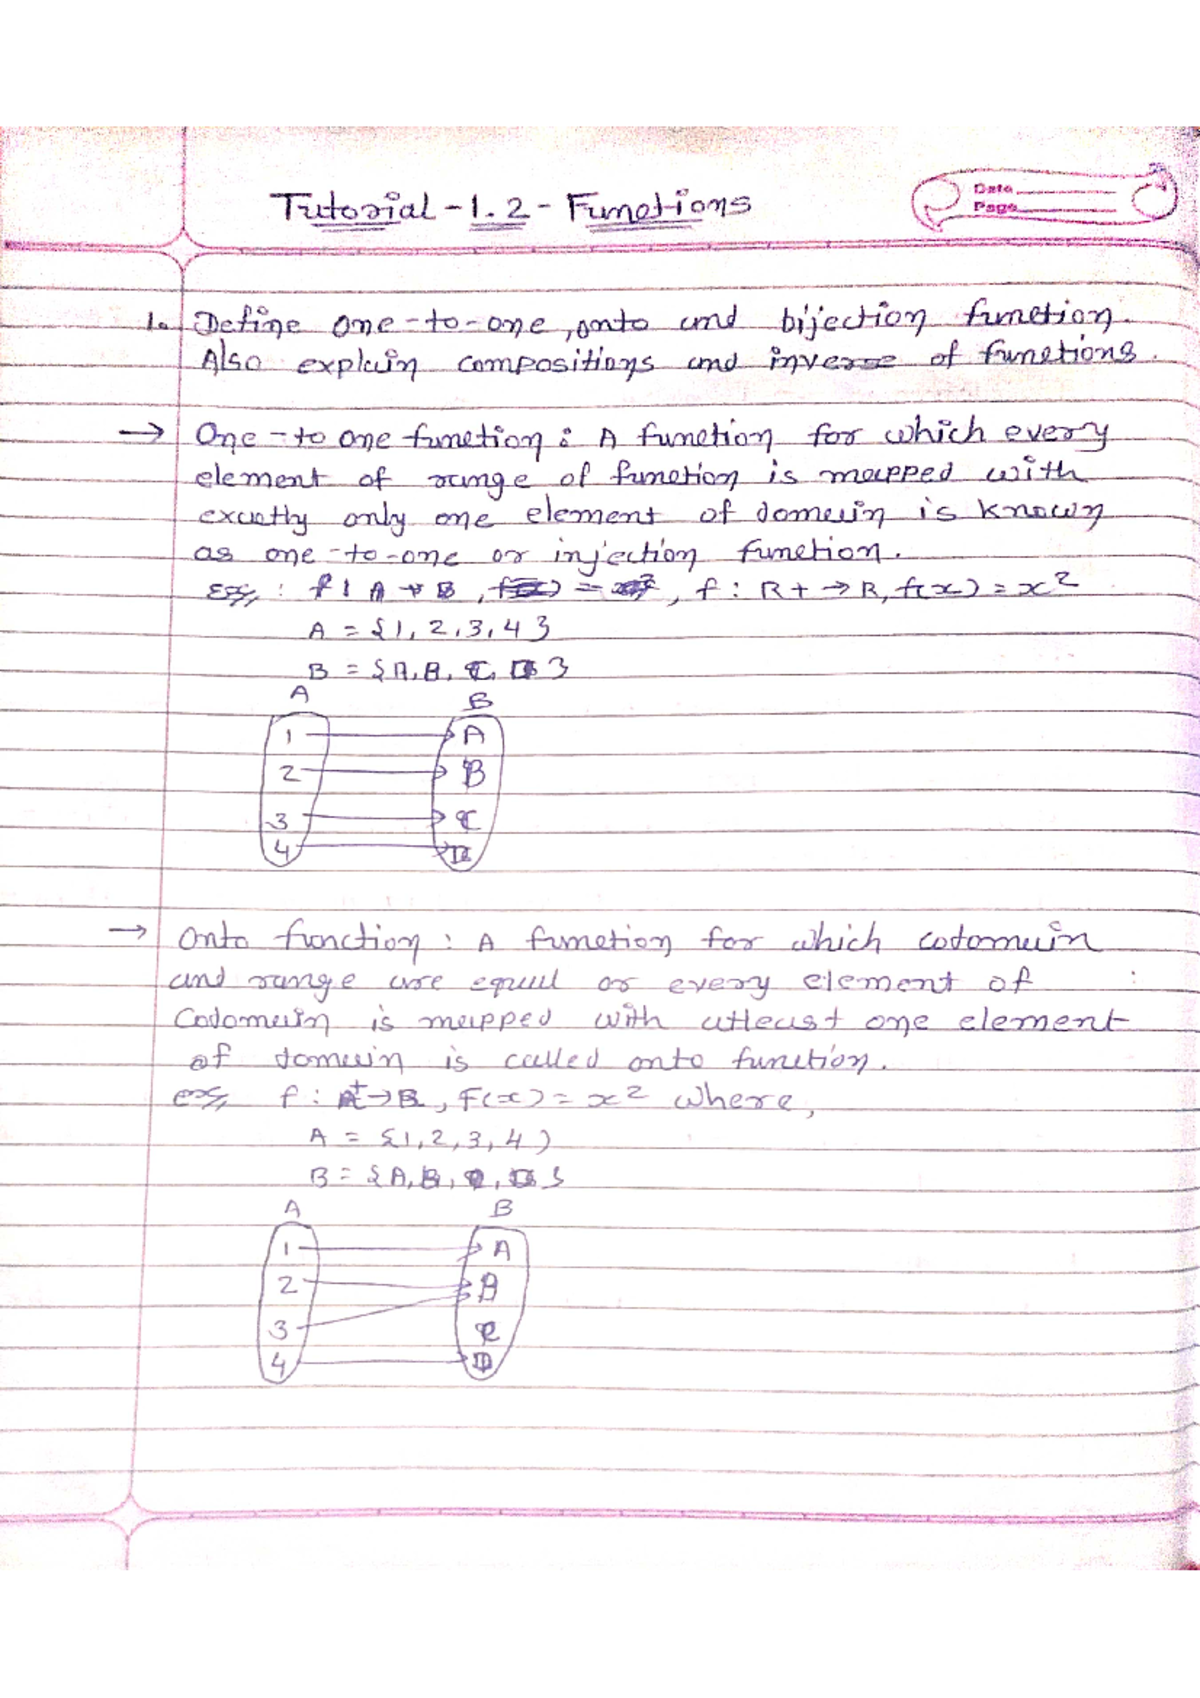 Tutorial - 1.2 - Functions
Date
Page
1. Define one-to-one, onto and bijection function.
Also explain compositions and inverse of functions.
→ One-to one function : A function for which every
element of range of function is mapped with
exactly only one element of domain is known
as one-to-one or injection function.
f : A → B , f : R+ → R, f(x) = x²
A = {1, 2, 3, 4}
B = {A, B, C, D}
A B
1 A
2 B
3 C
4 D
→ Onto function : A function for which codomain
and range are equal or every element of
Codomain is mapped with atleast one element
of domain is called onto function.
F(x) = x² where,
A = {1, 2, 3, 4)
B = {A, B, C, D}
A B
1 A
2 B
3 C
4 D